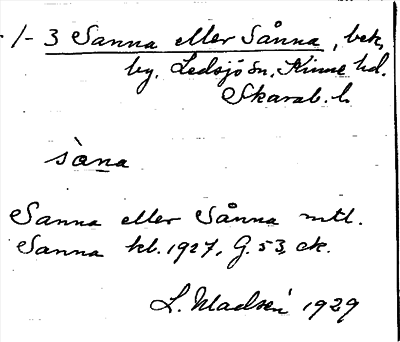 1-3 Sanna eller Sånna, bek,
by, Ledsjö sn, Kinne hd.
Skarab. l.
sàna
Sanna eller Sånna mtl.
Sanna kb. 1927, G. 53, ek.
L. Madsén 1929